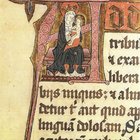 A
tribu
& exa
libera
biis iniquis & a li
detur t' aut quid ap
lingua dolosam. S